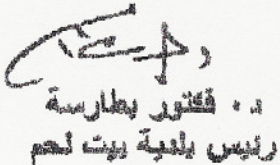 د. فكتور بطارسة
رئيس بلدية بيت لحم